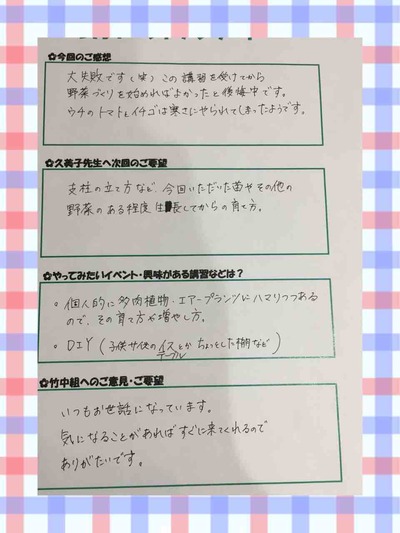 ✿今回のご感想
大失敗です(笑)この講習を受けてから
野菜づくりを始めればよかったと後悔中です。
ウチのトマトとイチゴは寒さにやられてしまったようです。
✿久美子先生へ次回のご要望
支柱の立て方など、今回いただいた苗やその他の
野菜のある程度生長してからの育て方。
✿やってみたいイベント・興味がある講習などは?
○個人的に多肉植物・エアープランツにハマりつつある
ので、その育て方や増やし方。
○DIY(子供サイズのイスとかちょっとした棚など)
テーブル
✿竹中組へのご意見・ご要望
いつもお世話になっています。
気になることがあればすぐに来てくれるので
ありがたいです。